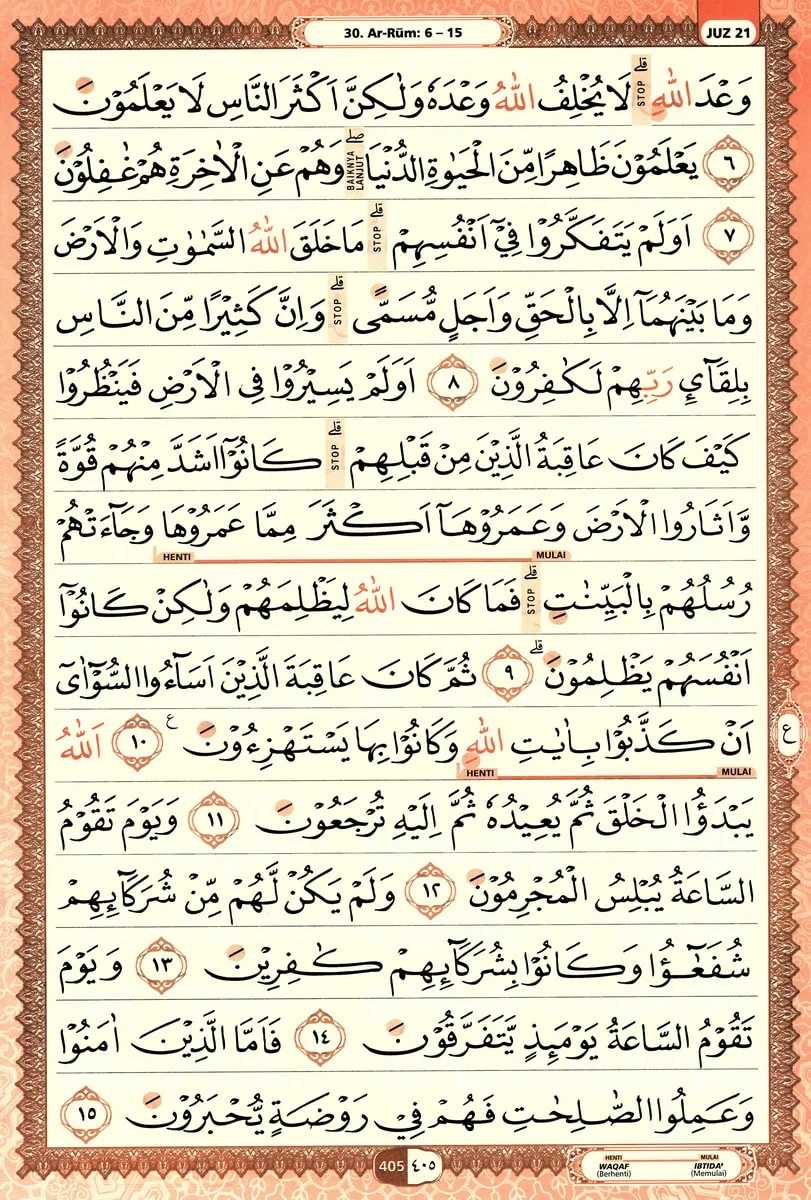 30. Ar-Rūm: 6 – 15
JUZ 21
وَعْدَ اللّٰهِ ۗ لَا يُخْلِفُ اللّٰهُ وَعْدَهٗ وَلٰكِنَّ اَكْثَرَ النَّاسِ لَا يَعْلَمُوْنَ
STOP
٦ يَعْلَمُوْنَ ظَاهِرًا مِّنَ الْحَيٰوةِ الدُّنْيَا ۖ وَهُمْ عَنِ الْاٰخِرَةِ هُمْ غٰفِلُوْنَ
BAIKNYA LANJUT
٧ اَوَلَمْ يَتَفَكَّرُوْا فِيْٓ اَنْفُسِهِمْ ۗ مَا خَلَقَ اللّٰهُ السَّمٰوٰتِ وَالْاَرْضَ
STOP
وَمَا بَيْنَهُمَآ اِلَّا بِالْحَقِّ وَاَجَلٍ مُّسَمًّى ۗ وَاِنَّ كَثِيْرًا مِّنَ النَّاسِ
STOP
بِلِقَاۤئِ رَبِّهِمْ لَكٰفِرُوْنَ ٨ اَوَلَمْ يَسِيْرُوْا فِى الْاَرْضِ فَيَنْظُرُوْا
كَيْفَ كَانَ عَاقِبَةُ الَّذِيْنَ مِنْ قَبْلِهِمْ ۗ كَانُوْٓا اَشَدَّ مِنْهُمْ قُوَّةً
STOP
وَّاَثَارُوا الْاَرْضَ وَعَمَرُوْهَآ اَكْثَرَ مِمَّا عَمَرُوْهَا وَجَاۤءَتْهُمْ
HENTI MULAI
رُسُلُهُمْ بِالْبَيِّنٰتِ ۗ فَمَا كَانَ اللّٰهُ لِيَظْلِمَهُمْ وَلٰكِنْ كَانُوْٓا
STOP
اَنْفُسَهُمْ يَظْلِمُوْنَ ۗ ٩ ثُمَّ كَانَ عَاقِبَةَ الَّذِيْنَ اَسَاۤءُوا السُّوْۤاٰىٓ
اَنْ كَذَّبُوْا بِاٰيٰتِ اللّٰهِ وَكَانُوْا بِهَا يَسْتَهْزِءُوْنَ ع ١٠ اَللّٰهُ
ع
HENTI MULAI
يَبْدَؤُا الْخَلْقَ ثُمَّ يُعِيْدُهٗ ثُمَّ اِلَيْهِ تُرْجَعُوْنَ ١١ وَيَوْمَ تَقُوْمُ
السَّاعَةُ يُبْلِسُ الْمُجْرِمُوْنَ ١٢ وَلَمْ يَكُنْ لَّهُمْ مِّنْ شُرَكَاۤىِٕهِمْ
شُفَعٰۤؤُا وَكَانُوْا بِشُرَكَاۤىِٕهِمْ كٰفِرِيْنَ ١٣ وَيَوْمَ
تَقُوْمُ السَّاعَةُ يَوْمَىِٕذٍ يَّتَفَرَّقُوْنَ ١٤ فَاَمَّا الَّذِيْنَ اٰمَنُوْا
وَعَمِلُوا الصّٰلِحٰتِ فَهُمْ فِيْ رَوْضَةٍ يُّحْبَرُوْنَ ١٥
405 ٤٠٥
HENTI MULAI
WAQAF IBTIDA'
(Berhenti) (Memulai)